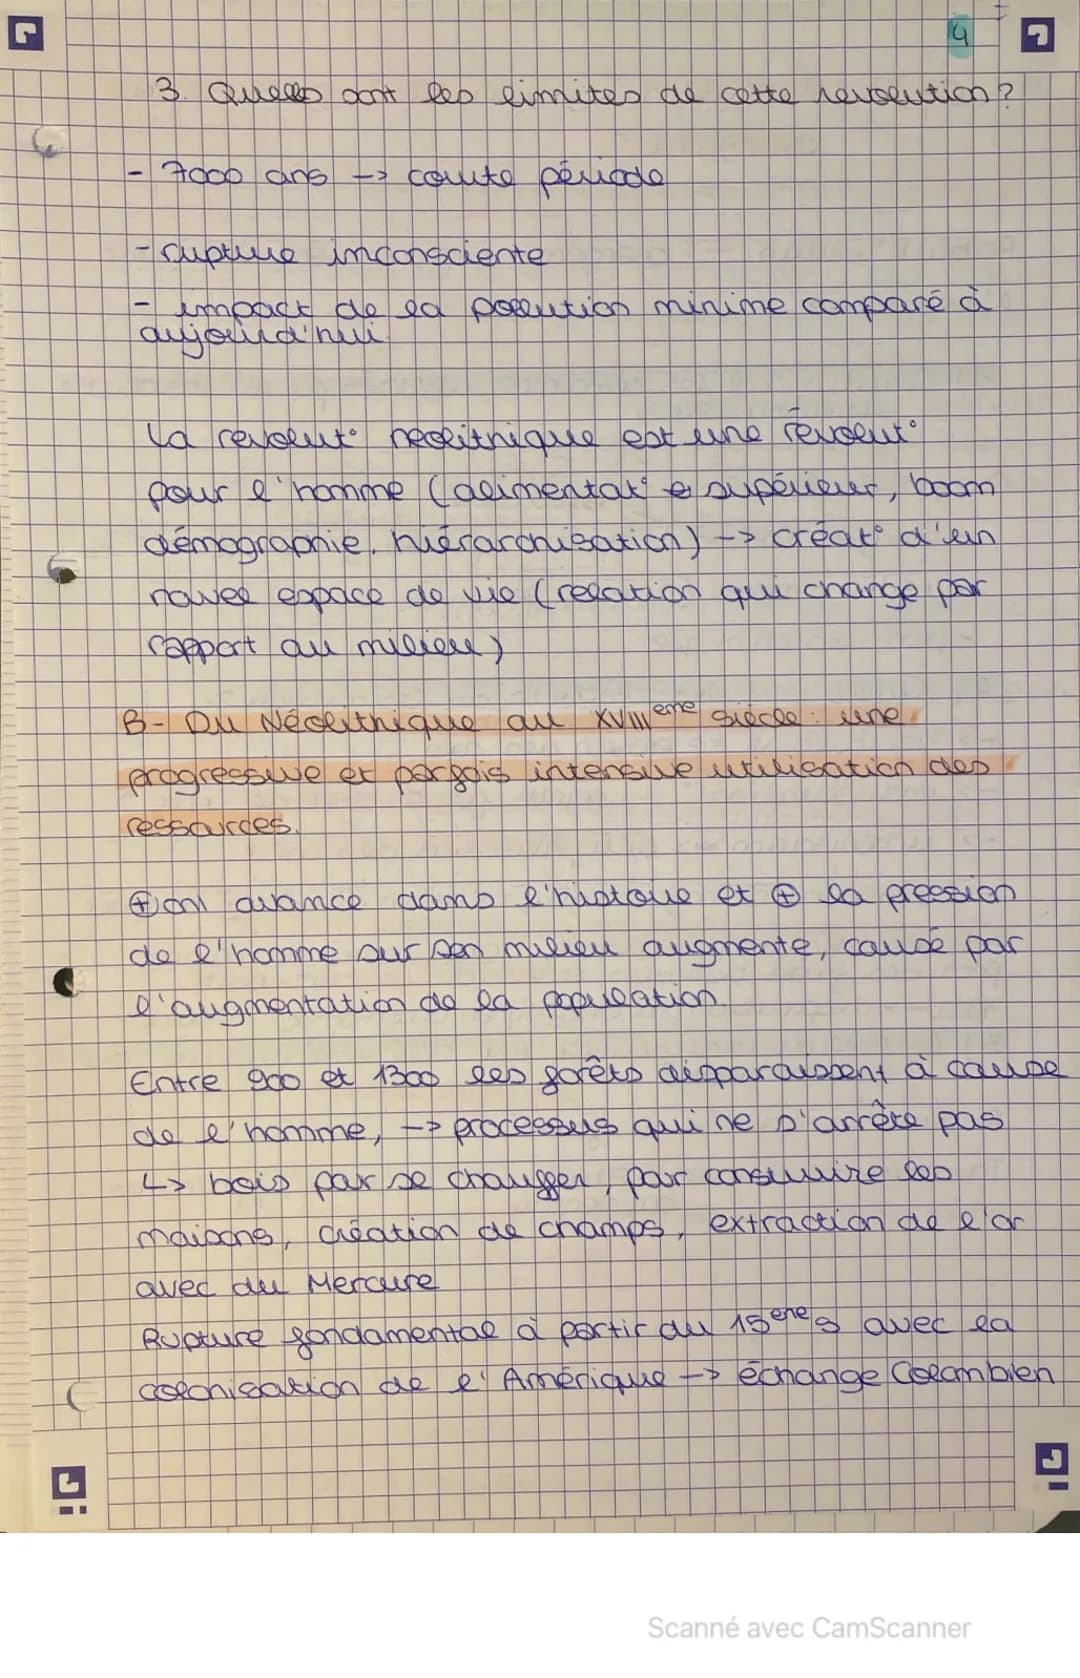 4
3. Quelles sont les limites de cette révolution?
- 7000 ans -> courte période
- rupture inconsciente
- impact de la pollution minime comparé à
aujourd'hui
La révolut° néolithique est une révolut°
pour l'homme (alimentat° supérieur, boom
démographie, hiérarchisation) -> créat° d'un
nouvel espace de vie (relation qui change par
rapport au milieu)
B- Du Néolithique au XVIIIeme siècle : une
progressive et parfois intensive utilisation des
ressources.
⊕ on avance dans l'histoire et ⊕ la pression
de l'homme sur son milieu augmente, causé par
l'augmentation de la population.
Entre 900 et 1300 les forêts disparaissent à cause
de l'homme, -> processus qui ne s'arrête pas
↳ bois par se chauffer, par construire les
maisons, création de champs, extraction de l'or
avec du Mercure
Rupture fondamental à partir du 15eme s avec la
colonisation de l'Amérique -> échange Colombien
Scanné avec CamScanner